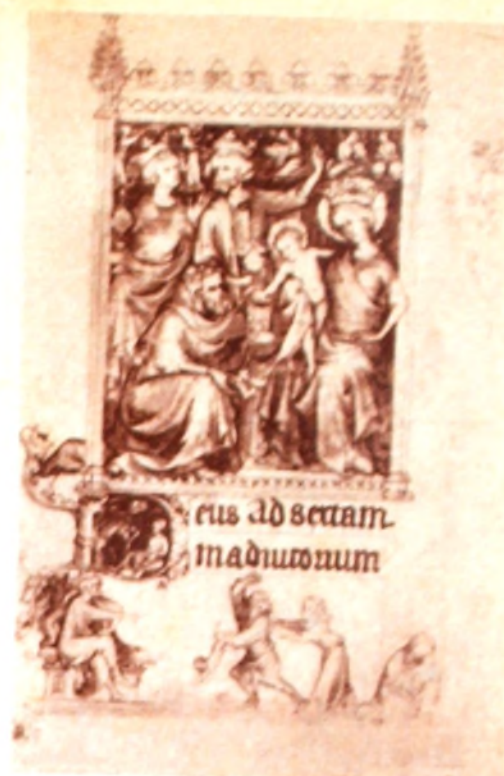 Deus ad sextam
in adiutorium